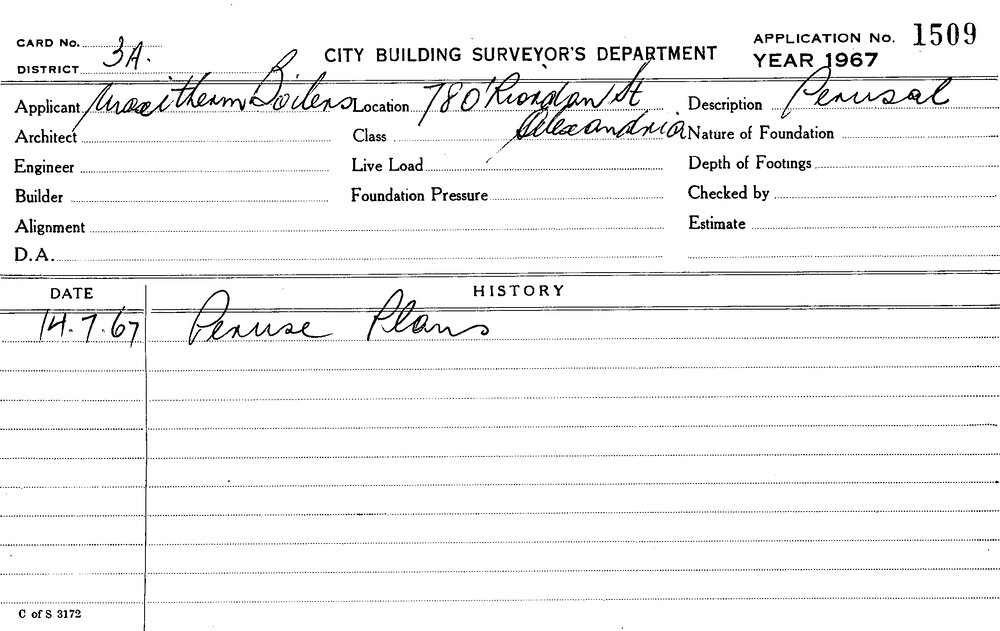 CARD No. 3A.
DISTRICT
CITY BUILDING SURVEYOR'S DEPARTMENT
APPLICATION No. 1509
YEAR 1967
Applicant Maxitherm Boilers Location 780'Riordan St Alexandria Description Perusal
Architect Class Nature of Foundation
Engineer Live Load Depth of Footings
Builder Foundation Pressure Checked by
Alignment Estimate
D.A.
DATE HISTORY
14.7.67 Peruse Plans
C of S 3172